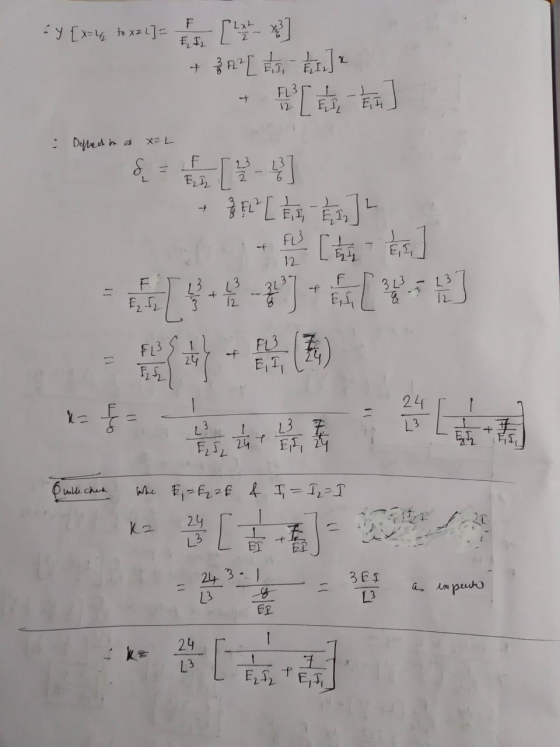 ∴ y [x=L/2 to x=L] = F/(E₂I₂) [Lx²/2 − x³/6]
+ 3/8 FL² [1/(E₁I₁) − 1/(E₂I₂)] x
+ FL³/12 [1/(E₂I₂) − 1/(E₁I₁)]
∴ Deflection at x=L
δ_L = F/(E₂I₂) [L³/2 − L³/6]
+ 3/8 FL² [1/(E₁I₁) − 1/(E₂I₂)] L
+ FL³/12 [1/(E₂I₂) − 1/(E₁I₁)]
= F/(E₂I₂) [L³/3 + L³/12 − 3L³/8] + F/(E₁I₁) [3L³/8 − L³/12]
= FL³/(E₂I₂) {1/24} + FL³/(E₁I₁) (7/24)
k = F/δ = 1/(L³/(E₂I₂) 1/24 + L³/(E₁I₁) 7/24) = 24/L³ [1/(1/(E₂I₂) + 7/(E₁I₁))]
Quick check E₁=E₂=E & I₁=I₂=I
k = 24/L³ [1/(1/EI + 7/EI)] =
= 24/L³ 3 · 1/(8/EI) = 3EI/L³ as
∴ k = 24/L³ [1/(1/(E₂I₂) + 7/(E₁I₁))]